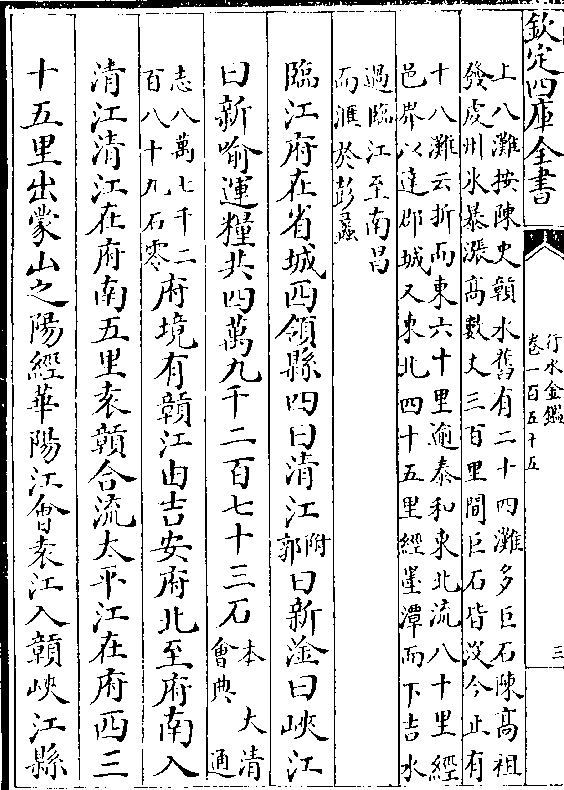 欽定四庫全書
行水金鑑
卷一百五十五
三
上八灘按陳史贑水舊有二十四灘多巨石陳高祖
發䖍州水暴漲高數丈三百里間巨石皆没今止有
十八灘云折而東六十里逾泰和東北流八十里經
邑界以達郡城又東北四十五里經墨潭而下吉水
過臨江至南昌
而滙於彭蠡
臨江府在省城西領縣四曰清江附郭曰新淦曰峽江
曰新喻運糧共四萬九千二百七十三石本 大清會典 通
志八萬七千二百八十九石零府境有贑江由吉安府北至府南入
清江清江在府南五里袁贑合流太平江在府西三
十五里出蒙山之陽經華陽江會袁江入贑峽江縣